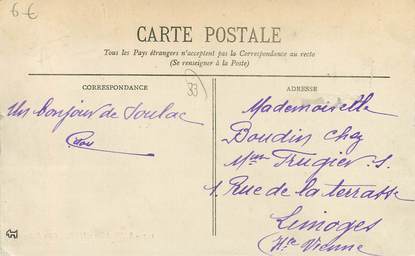 6€
CARTE POSTALE
Tous les Pays étrangers n'acceptent pas la Correspondance au recto
(Se renseigner à la Poste)
CORRESPONDANCE
33
ADRESSE
Un bonjour de Soulac
Mademoiselle
Boudin chez
Mme Frugier. S.
1. Rue de la terrasse
Limoges
Hte Vienne